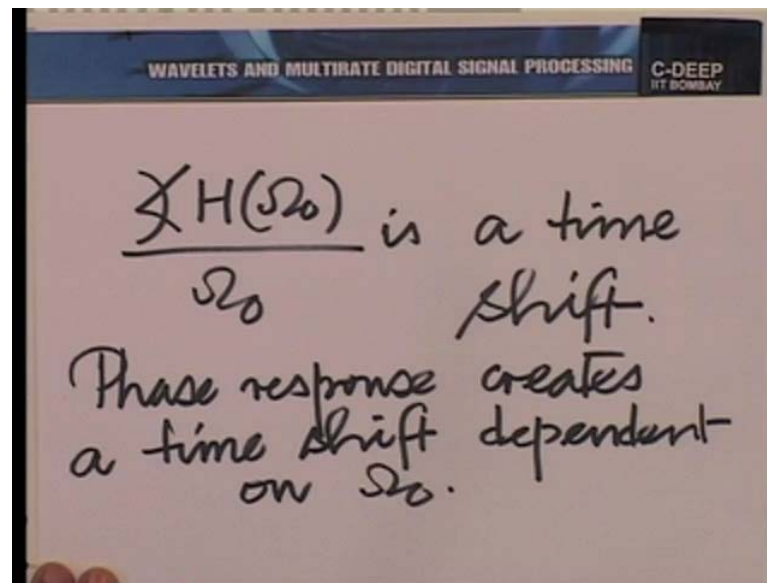 WAVELETS AND MULTIRATE DIGITAL SIGNAL PROCESSING
C-DEEP
IIT BOMBAY
∡H(Ω₀)
Ω₀
is a time
shift.
Phase response creates
a time shift dependent
on Ω₀.